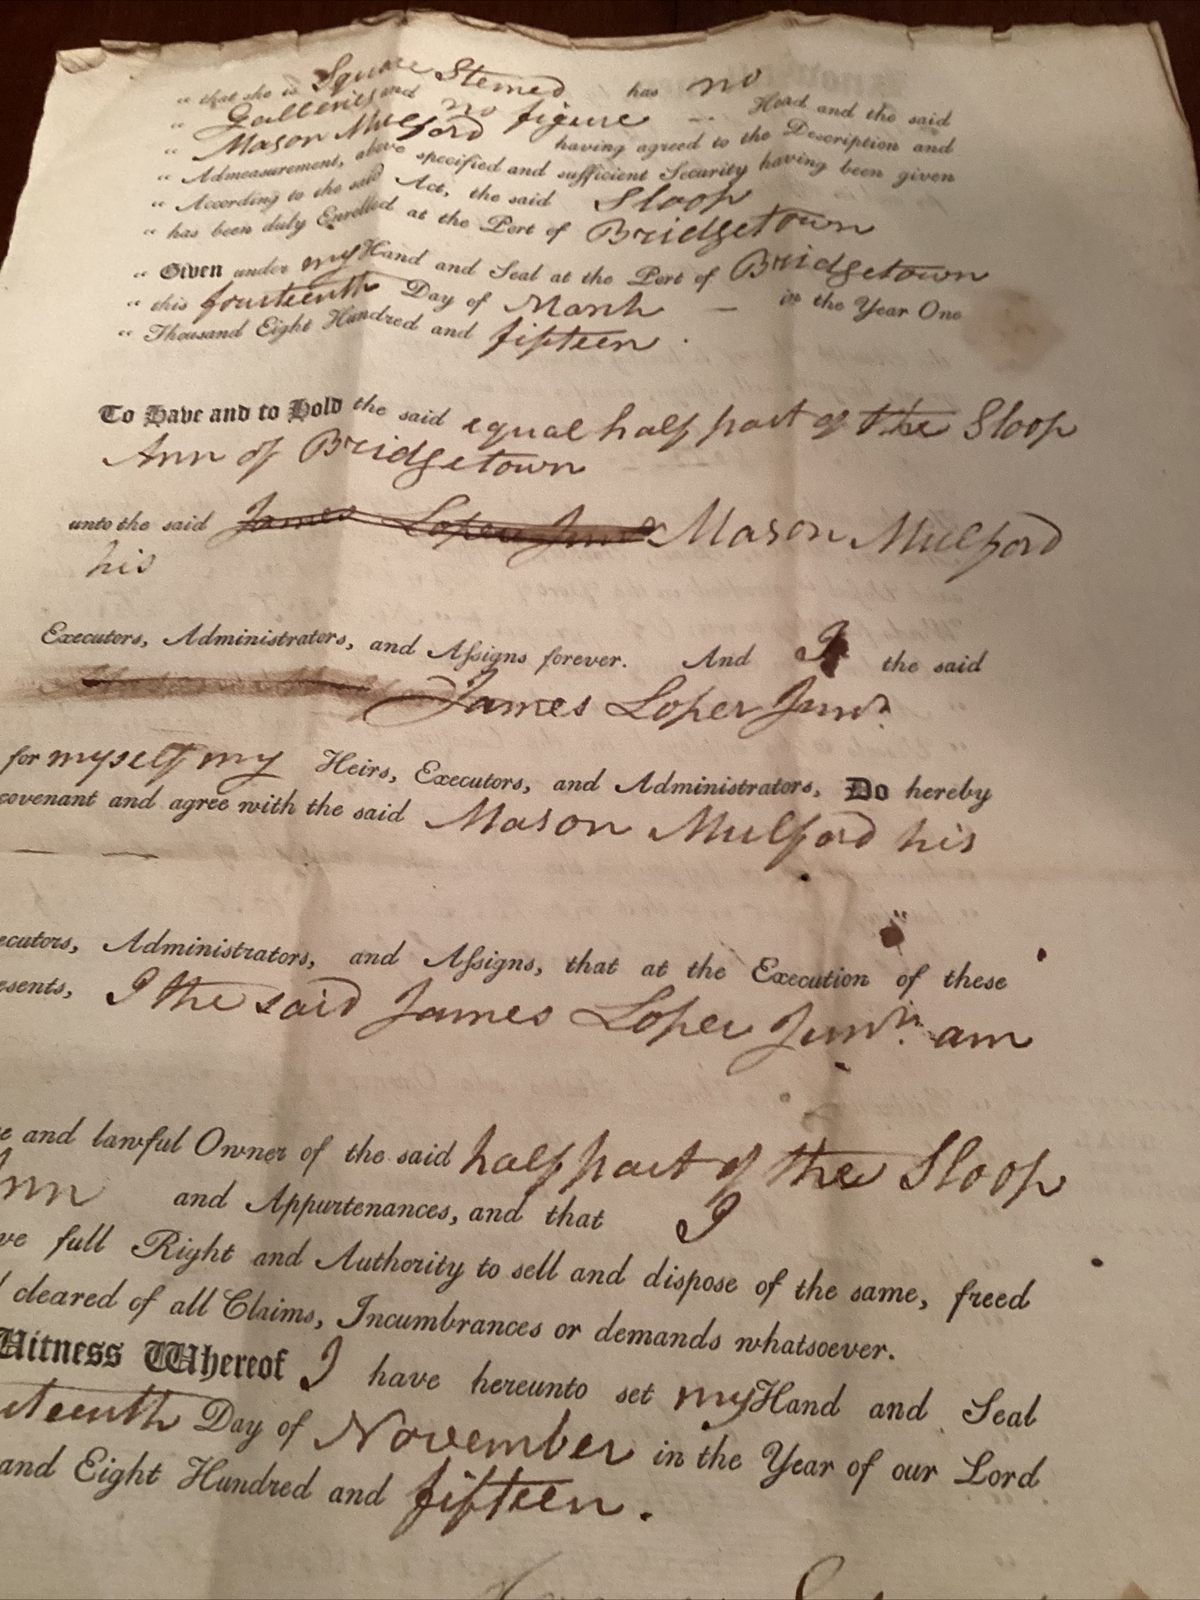 “ that she is Square Stemed has no
“ Galleries and no figure -- Head and the said
“ Mason Mulford having agreed to the Description and
“ Admeasurement, above specified and sufficient Security having been given
“ According to the said Act, the said Sloop
“ has been duly Enrolled at the Port of Bridgetown
“ Given under my Hand and Seal at the Port of Bridgetown
“ this fourteenth Day of March — in the Year One
“ Thousand Eight Hundred and fifteen .
To Have and to Hold the said equal half part of the Sloop
Ann of Bridgetown
unto the said James Loper Junr Mason Mulford
his
Executors, Administrators, and Assigns forever. And I the said
James Loper Junr.
for myself my Heirs, Executors, and Administrators, Do hereby
covenant and agree with the said Mason Mulford his
ecutors, Administrators, and Assigns, that at the Execution of these
esents, I the said James Loper Junr. am
e and lawful Owner of the said half part of the Sloop
Ann and Appurtenances, and that I
ve full Right and Authority to sell and dispose of the same, freed
d cleared of all Claims, Incumbrances or demands whatsoever.
Witness Whereof I have hereunto set my Hand and Seal
teenth Day of November in the Year of our Lord
and Eight Hundred and fifteen.